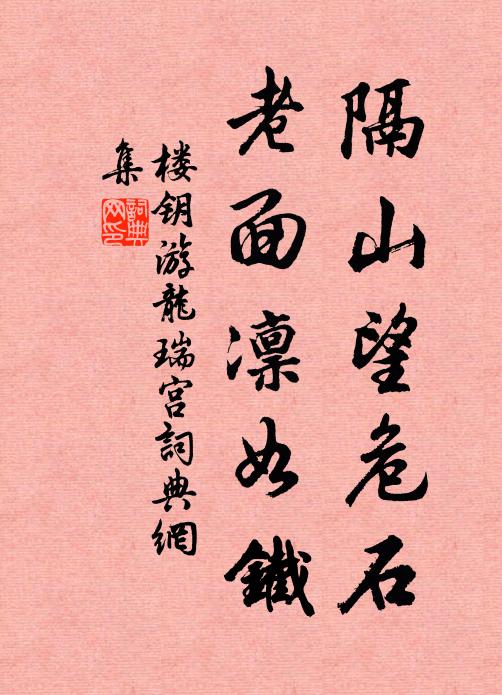 隔山望危石
老面凛如鐵
楼钥游龍瑞宫詞典網
集
詞典網印